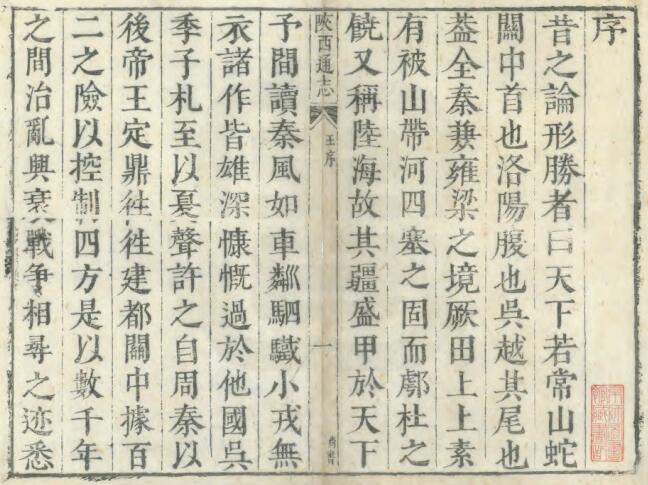 序
昔之論形勝者曰天下若常山蛇
關中首也洛陽腹也吳越其尾也
葢全秦兼雍梁之境厥田上上素
有被山帶河四塞之固而鄠杜之
饒又稱陸海故其疆盛甲於天下
陝西通志
王序
一
予間讀秦風如車鄰駟驖小戎無
衣諸作皆雄深慷慨過於他國吳
季子札至以夏聲許之自周秦以
後帝王定鼎徃徃建都關中據百
二之險以控制四方是以數千年
之間治亂興衰戰爭相尋之迹悉